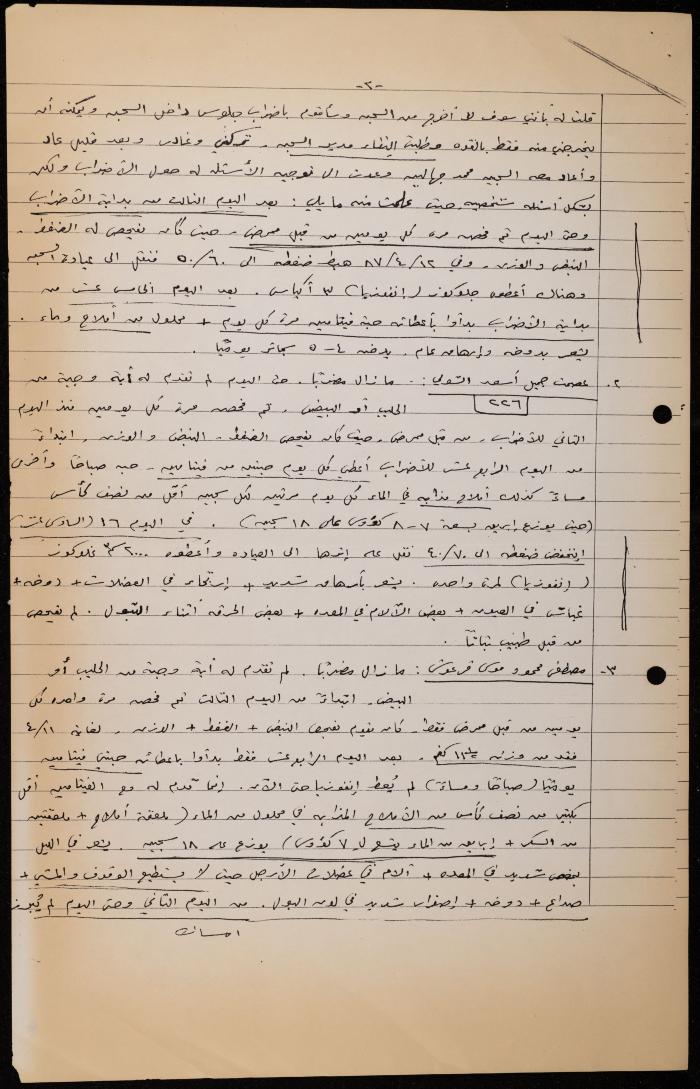 -٣-
قلت له بأنني سوف لا أخرج من السجن وسأقوم باضراب جلوس داخل السجن ويمكنه أن
يخرجني منه فقط بالقوه وطلبت التقاء مدير السجن. تركني وغادر وبعد قليل عاد
وأعاد معه السجين محمد وعدت الى توجيه الأسئله له حول الأضراب ولكن
بشكل أسئله شخصيه حيث علمت منه ما يلي: بعد اليوم الثالث من بداية الأضراب
وحتى اليوم تم فحصه مره كل يومين من قبل ممرض، حيث كان يفحص له الضغط،
النبض والوزن. وفي ٨٧/٤/١٢ هبط ضغطه الى ٥٠/٦٠ فنقل الى عيادة السجن
وهناك أعطوه جلوكوز (إنفوزيا) ٣ أكياس. بعد اليوم الخامس عشر من
بداية الأضراب بدأوا بأعطائه حبة فيتامين مرة كل يوم + محلول من أملاح وماء.
يشعر بدوخه وإرهاق عام. يدخن ٤-٥ سجائر يوميًا.
٢. عصمت جميل أسعد : ما زال مضربًا. حتى اليوم لم تقدم له أية وجبة من
٢٢٦
الحليب أو البيض. تم فحصه مرة كل يومين منذ اليوم
الثاني للأضراب، من قبل ممرض، حيث كان يفحص الضغط، النبض والوزن. ابتداءً
من اليوم الرابع عشر للأضراب أعطي كل يوم حبتين من فيتامين، حبه صباحًا وأخرى
مساءً كذلك أملاح مذابه في الماء كل يوم مرتين لكل سجين أقل من نصف كأس
(حيث يوزع إبريق بسعة ٧-٨ كؤوس على ١٨ سجين). في اليوم ١٦ (السادس عشر)
إنخفض ضغطه الى ٤٠/٧٠ نقل على إثرها الى العياده وأعطوه جلوكوز
(إنفوزيا) لمرة واحده. يشعر بأرهاق شديد + إرتخاء في العضلات + دوخه +
غباش في العيون + بعض الآلام في المعده + بعض الحرقه أثناء التبول. لم يفحص
من قبل طبيب نباتًا.
٣- مصطفى محمود موسى قرعوش: ما زال مضربًا. لم تقدم له أية وجبة من الحليب أو
البيض. ابتداءً من اليوم الثالث تم فحصه مرة واحده كل
يومين من قبل ممرض فقط. كان يقوم بفحص النبض + الضغط + الوزن. لغاية ٤/١١
فقد من وزنه كغم. بعد اليوم الرابع عشر فقط بدأوا باعطائه حبتي فيتامين
يوميًا (صباحًا ومساءً) لم يُعط إنفوزيا حتى الآن. إنما تقدم له مع الفيتامين أقل
بكثير من نصف كأس من الأملاح المذابه في محلول من الماء (ملعقة أملاح + ملعقتين
من السكر + إبريق من الماء يتسع ل ٧ كؤوس) يوزع على ١٨ سجين. يشعر في الليل
بمغص شديد في المعده + آلام في عضلات الأرجل حيث لا يستطيع الوقوف والمشي +
صداع + دوخه + إصفرار شديد في لون البول. من اليوم الثاني وحتى اليوم لم
امساك